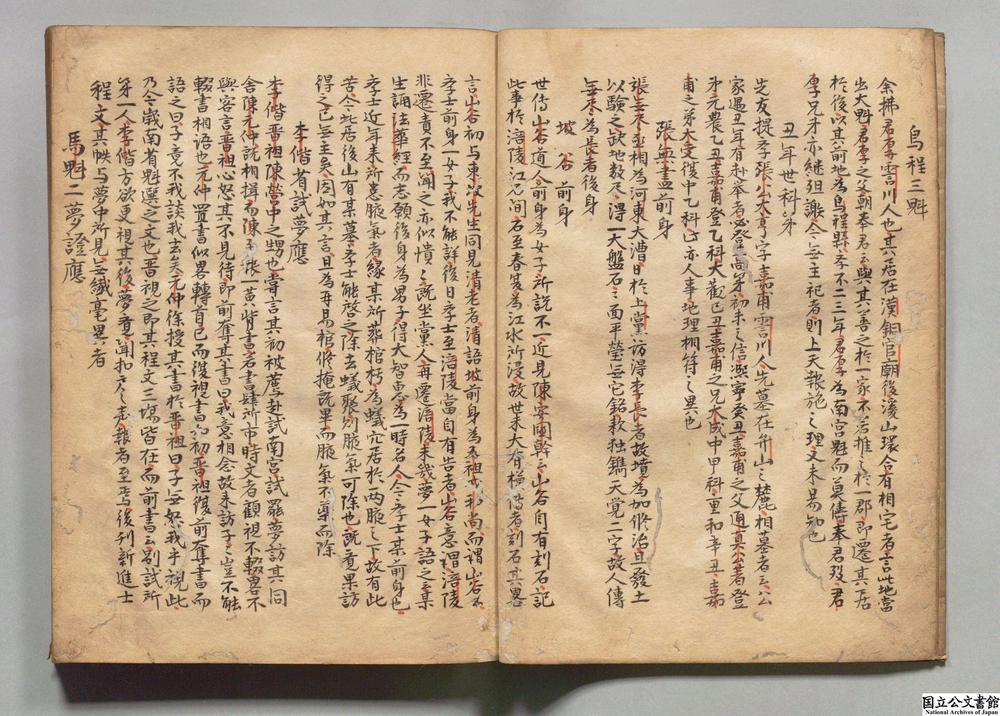 烏程三魁
余拂君厚霅川人也其居在漢銅官廟後溪山環合有相宅者言此地當
出大魁君厚之父朝奉君云與其善之於一家不若推之於一郡即遷其居
於後以其前地為烏程縣學不二三年君厚為南宮魁而莫儔奉君殁君
厚兄弟亦継殂謝今無主祀者則上天報施之理又未易知也
丑年世科第
先友提學張公大亨字嘉甫霅川人先墓在弁山之麓相墓者云公
家遇丑年有赴舉者必登高第初未之信熈寧癸丑嘉甫之父通直公著登
第元豊乙丑嘉甫登乙科大觀己丑嘉甫之兄大成中甲科重和辛丑嘉
甫之弟大受復中乙科此亦人事地理相符之異也
張無盡前身
張無盡丞相為河東大漕日於上黨訪得李長者故墳為加修治且發土
以驗之掘地數尺得一大盤石石面平瑩無它銘款独鐫天覺二字故人傳
無盡為長者後身
坡谷前身
世傳山谷道人前身為女子所說不一近見陳安國幹云山谷自有刻石記
此事於涪陵江石間石至春夏為江水所浸故世未大有模傳者刻石其畧
言山谷初与東坡先生同見清老者清語坡前身為五祖戒和尚而謂山谷云
學士前身一女子我不能詳後日學士至涪陵當自有告者山谷意謂涪陵
非遷責不至聞之亦似憒憒既坐黨人再遷涪陵未幾夢一女子語之云某
生誦法華經而志願後身為男子得大智恵為一時名人今學士某前身也
學士近年来所患腋氣者緣某所葬棺朽為蟻穴居於兩腋之下故有此
苦今此居後山有某墓學士能啓之除去蟻聚則腋氣可除也既覺果訪
得之已無主矣因如其言且為再易棺修掩既畢而腋氣不藥而除
李偕省試夢應
李偕晋祖陳瑩中之甥也嘗言其初被薦赴試南宮試罷夢訪其同
舍陳元仲既相揖而陳手執一黄背書若書肆所市時文者顧視不輟畧不
與客言晋祖心怒其不見待即前奪其書曰我意相念故来訪子子豈不能
輟書相語也元仲置書似畧轉首已而復視書如初晋祖復前奪書而
語之曰子竟不我談我去矣元仲徐授其書於晋祖曰子無怒我乎視此
乃今嵗南省魁選之文也晋祖視之即其程文三塲皆在而前書云別試所
第一人李偕方欲更視其後夢覺聞扣戶之声報者至焉後刊新進士
程文其帙与夢中所見無纎毫異者
馬魁二夢證應
国立公文書館
National Archives of Japan